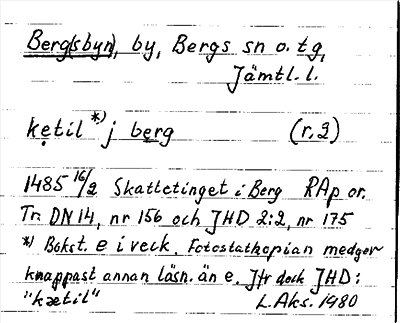 Berg(sbyn), by, Bergs sn o. tg,
Jämtl. l.
ketil *) j berg (r, 3)
1485 16/2 Skattetinget i Berg RAp or.
Tr. DN 14, nr 156 och JHD 2:2, nr 175
*) Bokst. e i veck. Fotostatkopian medger
knappast annan läsn. än e. Jfr dock JHD:
"kætil" L.Aks. 1980